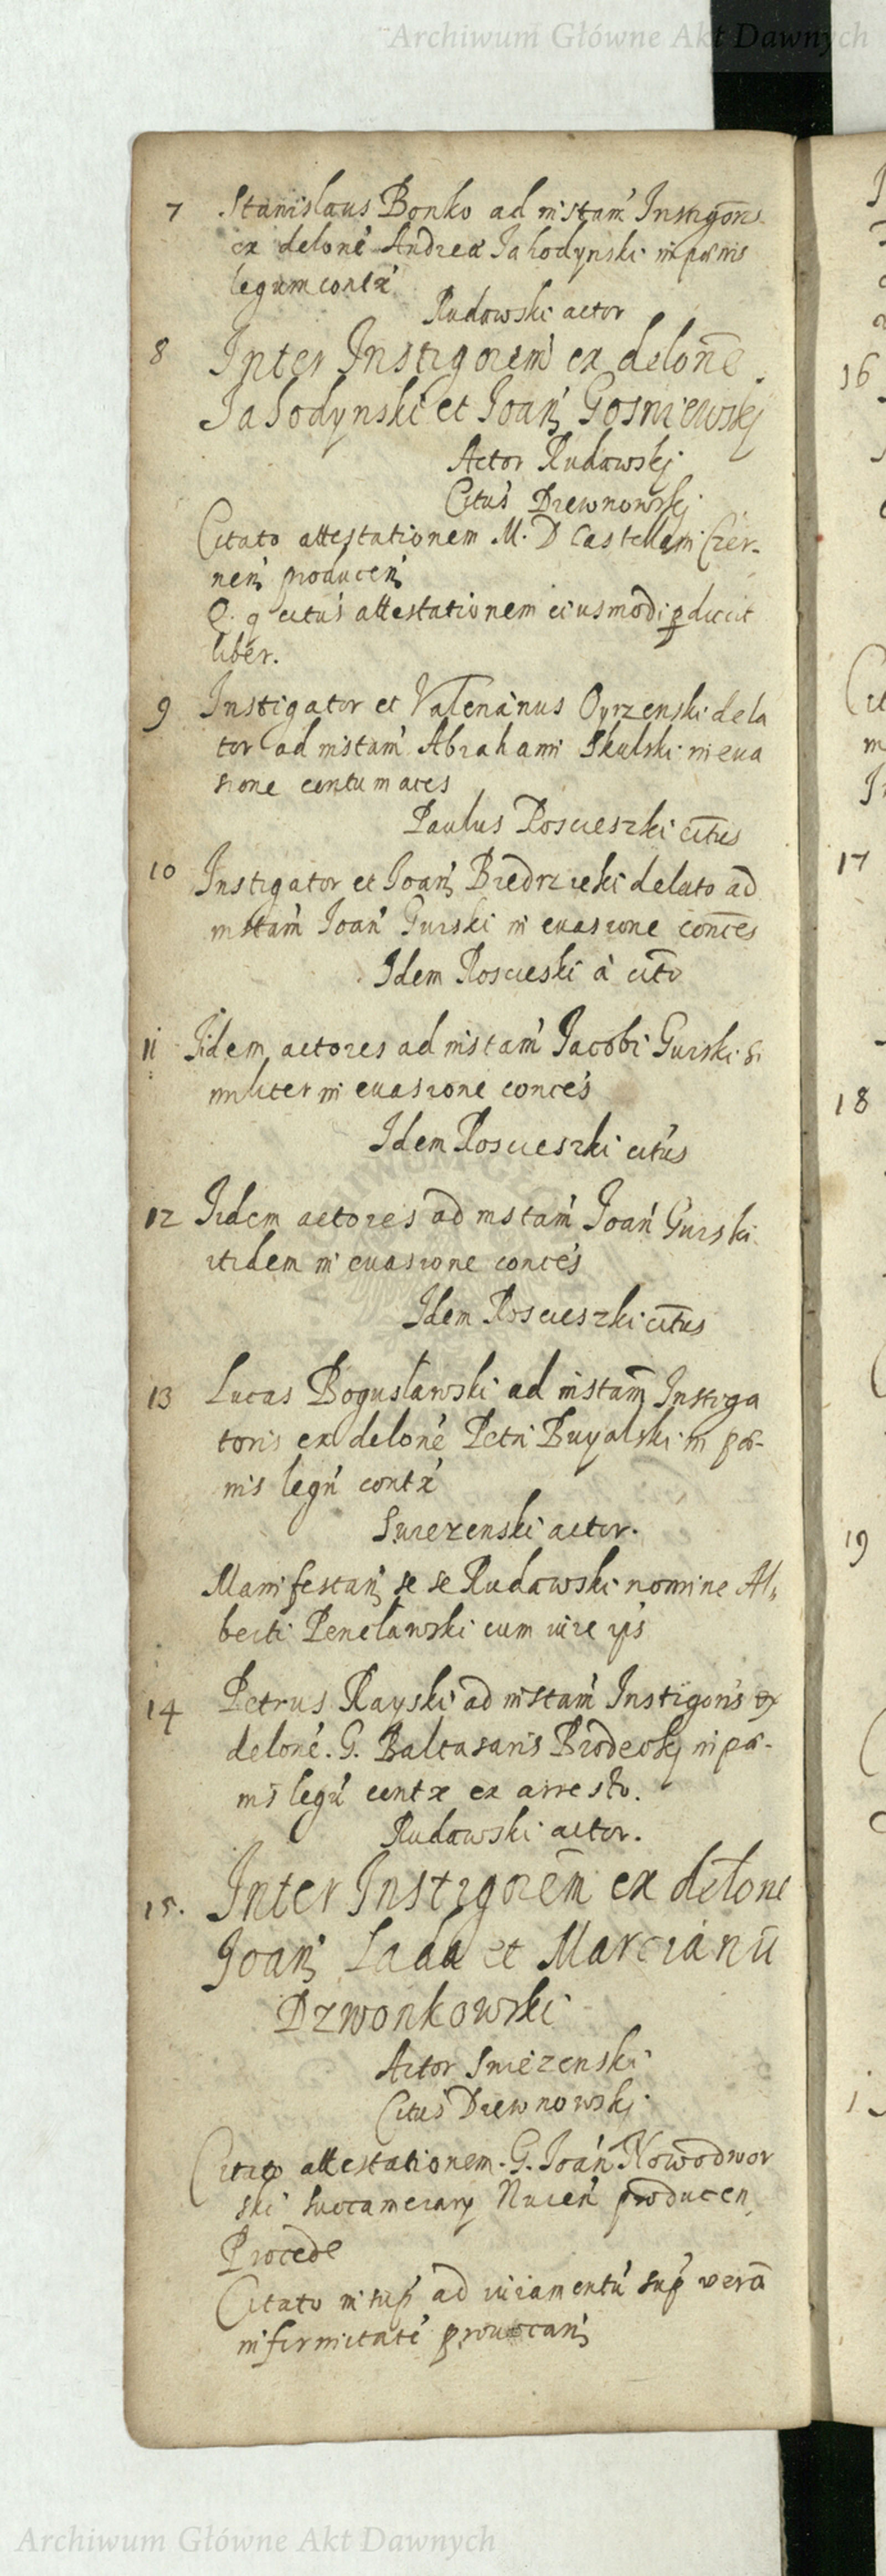 Archiwum Główne Akt Dawnych
7 Stanislaus Bonko ad instam Instigoris
ex delone Andreæ Jahodynski in pœnis
legum contx
Rudowski actor
8 Inter Instigorem ex delone
Jahodynski et Joan Gosniewskj
Actor Rudowskj
Citus Drewnowskj
Citato attestationem M. D Castellani Czer-
nen producen
Q. q citus attestationem eiusmodi pducit
liber.
9 Instigator et Valerianus Oyrzenski dela
tor ad instam Abrahami Skulski in eua
sione contumaces
Paulus Koscieszki citus
10 Instigator et Joan Biedrzicki delato ad
instam Joan Gurski in euasione conces
Idem Koscieski a cito
11 Iidem actores ad instam Jacobi Gurski si
militer in euasione conces
Idem Koscieszki citus
12 Iidem actores ad instam Joan Gurski
itidem in euasione conces
Idem Koscieszki citus
13 Lucas Bogusławski ad instam Instiga
toris ex delone Petri Buyalski in pœ-
nis legu contx
Smezenski actor.
Manifestan se se Rudawski nomine Al,
berti Peneławski cum iure ips
14 Petrus Rayski ad instam Instigoris ex
delone. G. Baltasaris Brodeckj in pœ-
nis legu contx ex arresto.
Rudowski actor.
15. Inter Instigorem ex delone
Joan Lada et Marcianu
Dzwonkowski
Actor Smezenski
Citus Drewnowski
Citato attestationem. G. Joan Nowodwor
ski Succamerary Nuren producen
Procede
Citato insup ad iuramentu sup vera
infirmitate prouocan
16
17
18
19
Archiwum Główne Akt Dawnych